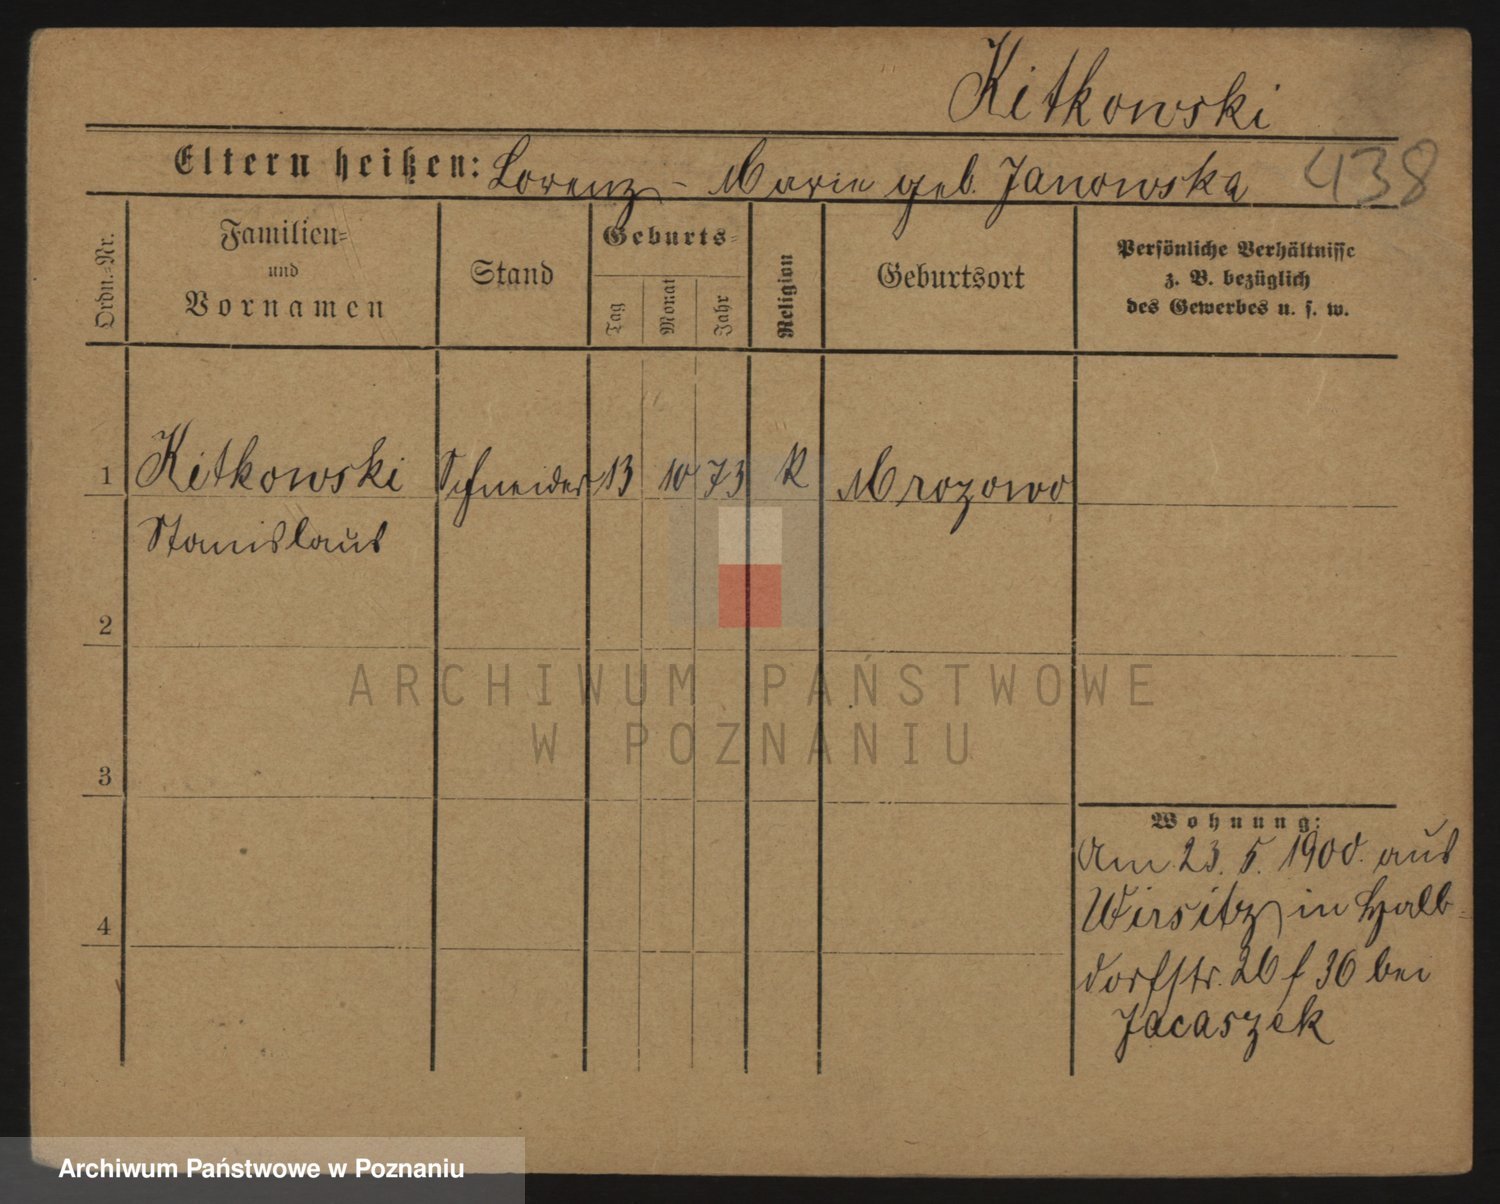 Kitkowski
Eltern heißen: Lorenz – Marie geb. Janowska 438
Ordn.-Nr.
Familien- und Vornamen
Stand
Geburts-
Tag
Monat
Jahr
Religion
Geburtsort
Persönliche Verhältnisse
z. B. bezüglich
des Gewerbes u. s. w.
1 Kitkowski Schneider 13 10 73 K Mrozowo
Stanislaus
2
ARCHIWUM PAŃSTWOWE
W POZNANIU
3
Wohnung:
Am 23. 5. 1900. aus
Wirsitz in Halb-
dorfstr. 26 f 36 bei
Jacaszek
4
Archiwum Państwowe w Poznaniu